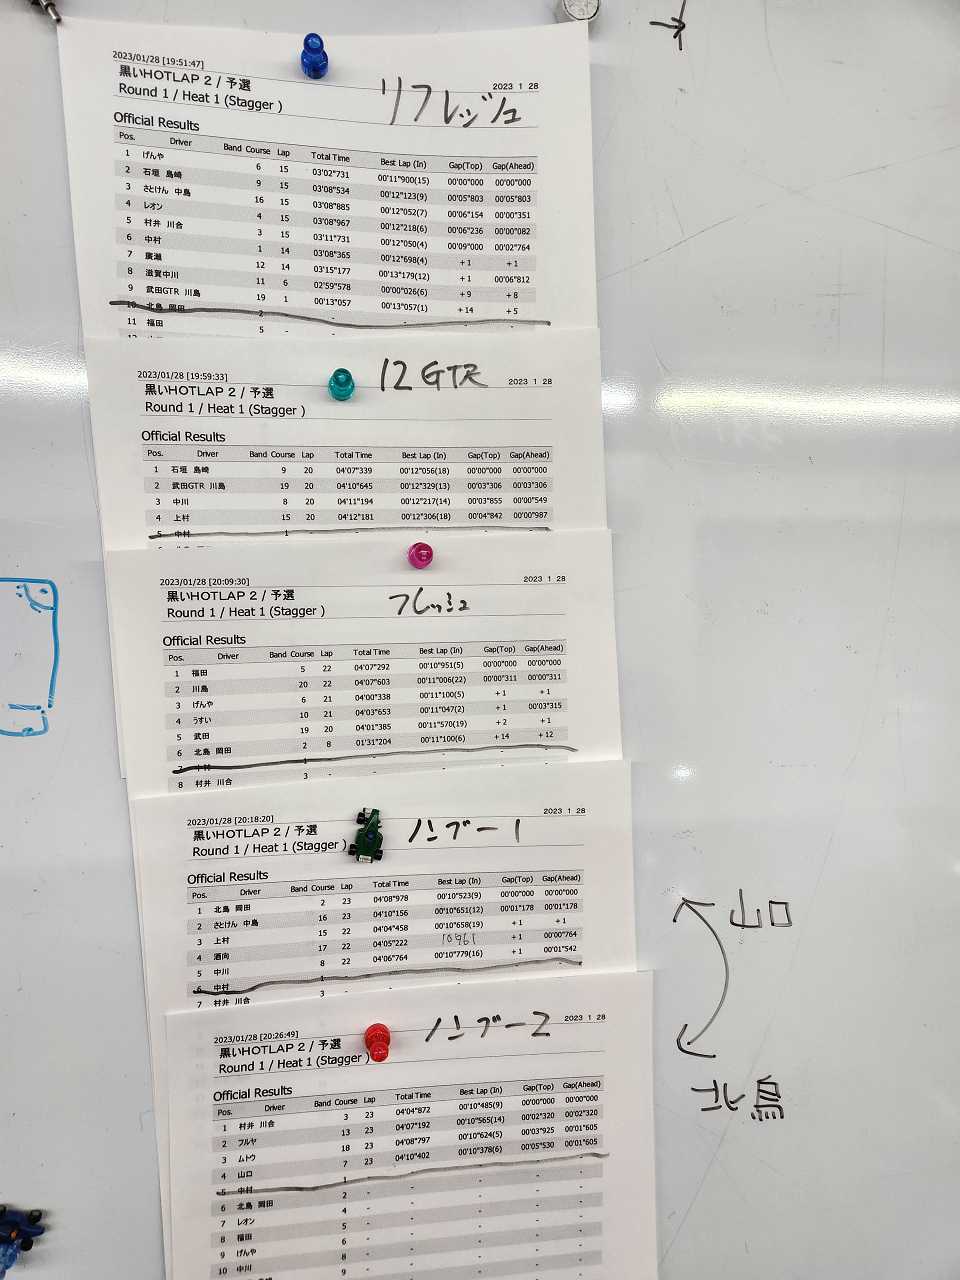 2023/01/28 [19:51:47]
2023 1 28
黒いHOTLAP 2 / 予選
リフレッシュ
Round 1 / Heat 1 (Stagger )
Official Results
Pos. Driver Band Course Lap Total Time Best Lap (In) Gap(Top) Gap(Ahead)
1 げんや 6 15 03'02"731 00'11"900(15) 00'00"000 00'00"000
2 石垣 島崎 9 15 03'08"534 00'12"123(9) 00'05"803 00'05"803
3 さとけん 中島 16 15 03'08"885 00'12"052(7) 00'06"154 00'00"351
4 レオン 4 15 03'08"967 00'12"218(6) 00'06"236 00'00"082
5 村井 川合 3 15 03'11"731 00'12"050(4) 00'09"000 00'02"764
6 中村 1 14 03'08"365 00'12"698(4) + 1 + 1
7 廣瀬 12 14 03'15"177 00'13"179(12) + 1 00'06"812
8 滋賀中川 11 6 02'59"578 00'00"026(6) + 9 + 8
9 武田GTR 川島 19 1 00'13"057 00'13"057(1) + 14 + 5
10 北島 岡田 2 - - - -
11 福田 5 - - - -
12
2023/01/28 [19:59:33]
12 GTR
2023 1 28
黒いHOTLAP 2 / 予選
Round 1 / Heat 1 (Stagger )
Official Results
Pos. Driver Band Course Lap Total Time Best Lap (In) Gap(Top) Gap(Ahead)
1 石垣 島崎 9 20 04'07"339 00'12"056(18) 00'00"000 00'00"000
2 武田GTR 川島 19 20 04'10"645 00'12"329(13) 00'03"306 00'03"306
3 中川 8 20 04'11"194 00'12"217(14) 00'03"855 00'00"549
4 上村 15 20 04'12"181 00'12"306(18) 00'04"842 00'00"987
5 中村 1
2023/01/28 [20:09:30]
2023 1 28
黒いHOTLAP 2 / 予選
フレッシュ
Round 1 / Heat 1 (Stagger )
Official Results
Pos. Driver Band Course Lap Total Time Best Lap (In) Gap(Top) Gap(Ahead)
1 福田 5 22 04'07"292 00'10"951(5) 00'00"000 00'00"000
2 川島 20 22 04'07"603 00'11"006(22) 00'00"311 00'00"311
3 げんや 6 21 04'00"338 00'11"100(5) + 1 + 1
4 うすい 10 21 04'03"653 00'11"047(2) + 1 00'03"315
5 武田 19 20 04'01"385 00'11"570(19) + 2 + 1
6 北島 岡田 2 8 01'31"204 00'11"100(6) + 14 + 12
7 中村 1
8 村井 川合 3 - - - -
2023/01/28 [20:18:20]
2023 1 28
黒いHOTLAP 2 / 予選
ノンブー1
Round 1 / Heat 1 (Stagger )
Official Results
Pos. Driver Band Course Lap Total Time Best Lap (In) Gap(Top) Gap(Ahead)
1 北島 岡田 2 23 04'08"978 00'10"523(9) 00'00"000 00'00"000
2 さとけん 中島 16 23 04'10"156 00'10"651(12) 00'01"178 00'01"178
3 上村 15 22 04'04"458 00'10"658(19) + 1 + 1
4 酒向 17 22 04'05"222 10961 + 1 00'00"764
5 中川 8 22 04'06"764 00'10"779(16) + 1 00'01"542
6 中村 1
7 村井 川合 3 -
山口
北島
2023/01/28 [20:26:49]
ノンブー2
2023 1 28
黒いHOTLAP 2 / 予選
Round 1 / Heat 1 (Stagger )
Official Results
Pos. Driver Band Course Lap Total Time Best Lap (In) Gap(Top) Gap(Ahead)
1 村井 川合 3 23 04'04"872 00'10"485(9) 00'00"000 00'00"000
2 フルヤ 13 23 04'07"192 00'10"565(14) 00'02"320 00'02"320
3 ムトウ 18 23 04'08"797 00'10"624(5) 00'03"925 00'01"605
4 山口 7 23 04'10"402 00'10"378(6) 00'05"530 00'01"605
5 中村 1
6 北島 岡田 2 - - - -
7 レオン 4 - - - -
8 福田 5 - - - -
9 げんや 6 - - - -
10 中川 8 - - - -
9 - - - -